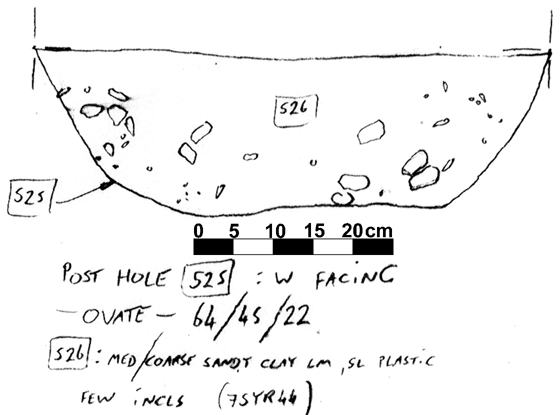 526
525
0 5 10 15 20cm
POST HOLE 525 : W FACING
— OVATE — 64/45/22
526 : MED/COARSE SANDY CLAY LM, SL PLASTIC
FEW INCLS (7SYR44)